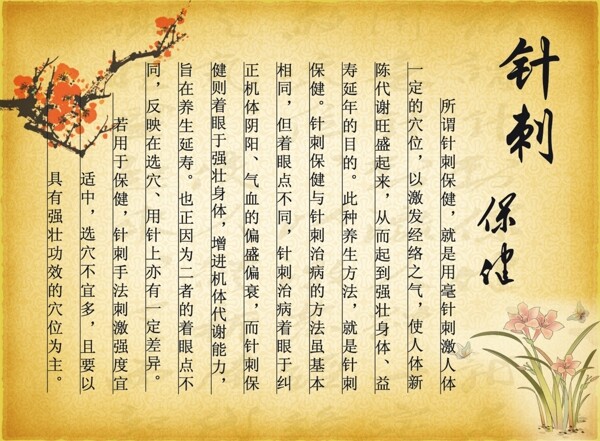 针刺
保健
所谓针刺保健，就是用毫针刺激人体
一定的穴位，以激发经络之气，使人体新
陈代谢旺盛起来，从而起到强壮身体、益
寿延年的目的。此种养生方法，就是针刺
保健。针刺保健与针刺治病的方法虽基本
相同，但着眼点不同，针刺治病着眼于纠
正机体阴阳、气血的偏盛偏衰，而针刺保
健则着眼于强壮身体，增进机体代谢能力，
旨在养生延寿。也正因为二者的着眼点不
同，反映在选穴、用针上亦有一定差异。
若用于保健，针刺手法刺激强度宜
适中，选穴不宜多，且要以
具有强壮功效的穴位为主。